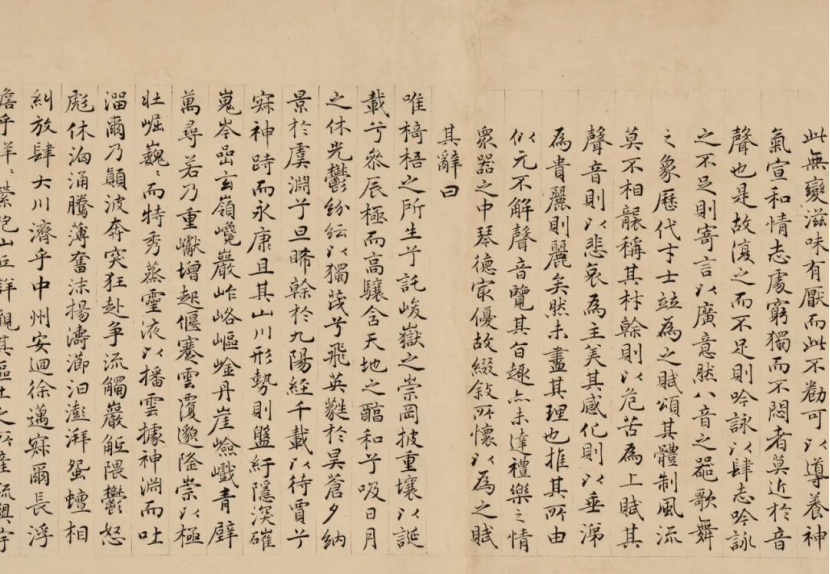 此無變滋味有厭而此不勌可以導養神
氣宣和情志處窮獨而不悶者莫近於音
聲也是故復之而不足則吟詠以肆志吟詠
之不足則寄言以廣意然八音之器歌舞
之象歷代才士竝為之賦頌其體制風流
莫不相襲稱其材幹則以危苦為上賦其
聲音則以悲哀為主美其感化則以垂涕
為貴麗則麗矣然未盡其理也推其所由
似元不解聲音覽其百趣亦未達禮樂之情
衆器之中琴德最優故綴敘所懷以為之賦
其辭曰
唯椅梧之所生兮託峻嶽之崇岡披重壤以誕
載兮參辰極而高驤含天地之醇和兮吸日月
之休光鬱紛紜以獨茂兮飛英蕤於昊蒼夕納
景於虞淵兮旦晞榦於九陽經千載以待賈兮
寂神跱而永康且其山川形勢則盤紆隱深磪
嵬岑嵒玄嶺巉巖岞峈嶇崟丹崖嶮巇青壁
萬尋若乃重巘增起偃蹇雲覆邈隆崇以極
壯崛巍〻而特秀蒸靈液以播雲據神淵而吐
溜爾乃顛波奔突狂赴爭流觸巖觝隈鬱怒
彪休洶涌騰薄奮沫揚濤瀄汩澎湃蛩蟺相
糾放肆大川濟乎中州安迴徐邁寂爾長浮
澹乎洋〻縈抱山丘詳觀其區土之所產流奧宇